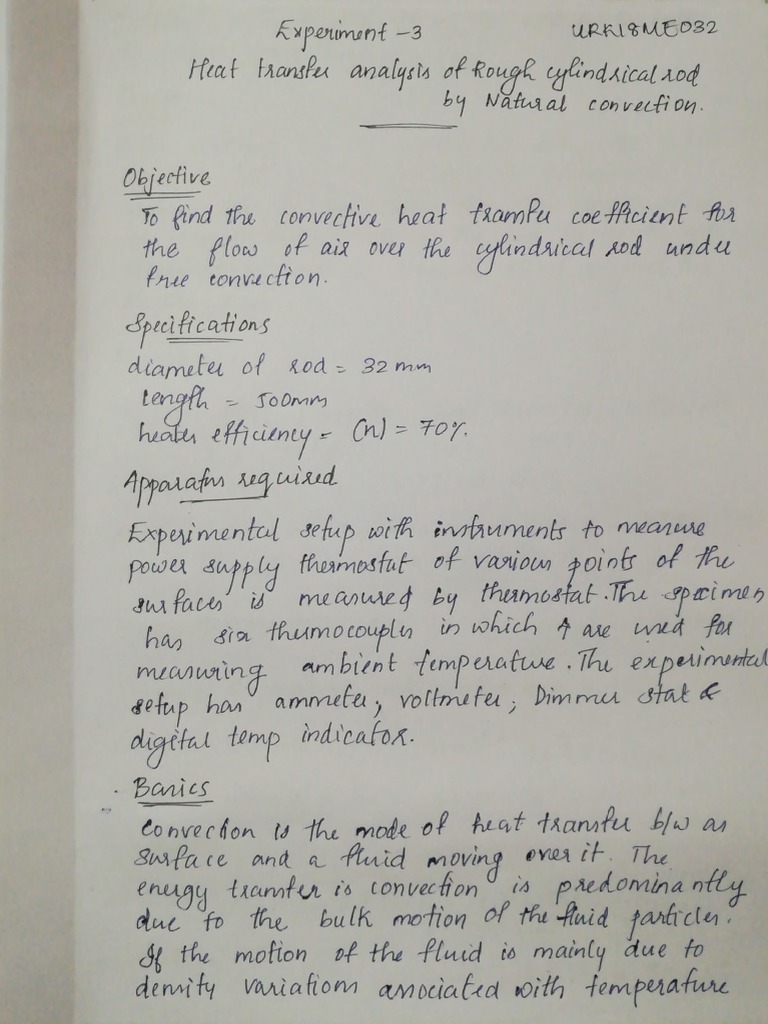 Experiment -3 URK18ME032
Heat transfer analysis of Rough cylindrical rod
by Natural convection.
Objective
To find the convective heat transfer coefficient for
the flow of air over the cylindrical rod under
free convection.
Specifications
diameter of rod = 32 mm
Length = 500mm
heater efficiency = (n) = 70%.
Apparatus required
Experimental setup with instruments to measure
power supply thermostat of various points of the
surfaces is measured by thermostat. The specimen
has six thermocouples in which 4 are used for
measuring ambient temperature. The experimental
setup has ammeter, voltmeter, Dimmer stat &
digital temp indicator.
Basics
Convection is the mode of heat transfer b/w as
surface and a fluid moving over it. The
energy transfer is convection is predominantly
due to the bulk motion of the fluid particles.
If the motion of the fluid is mainly due to
density variations associated with temperature